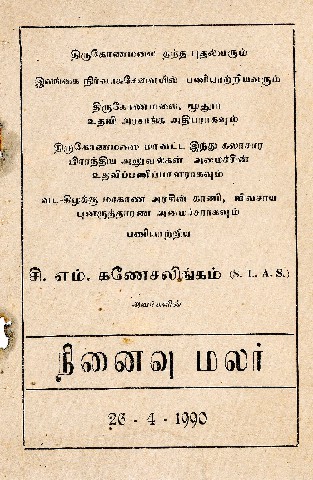 திருகோணமலை தந்த புதல்வரும்
இலங்கை நிர்வாகசேவையில் பணியாற்றியவரும்
திருகோணமலை, மூதூர்
உதவி அரசாங்க அதிபராகவும்
திருகோணமலை மாவட்ட இந்து கலாசார
பிராந்திய அலுவல்கள் அமைச்சின்
உதவிப்பணிப்பாளராகவும்
வட-கிழக்கு மாகாண அரசின் காணி, விவசாய
புனருத்தாரண அமைச்சராகவும்
பணியாற்றிய
சி. எம். கணேசலிங்கம் (S. L. A. S.)
அவர்களின்
நினைவு மலர்
26 - 4 - 1990